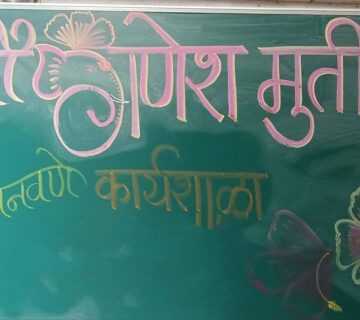 गणेश मुती
नवणे कार्यशाळा